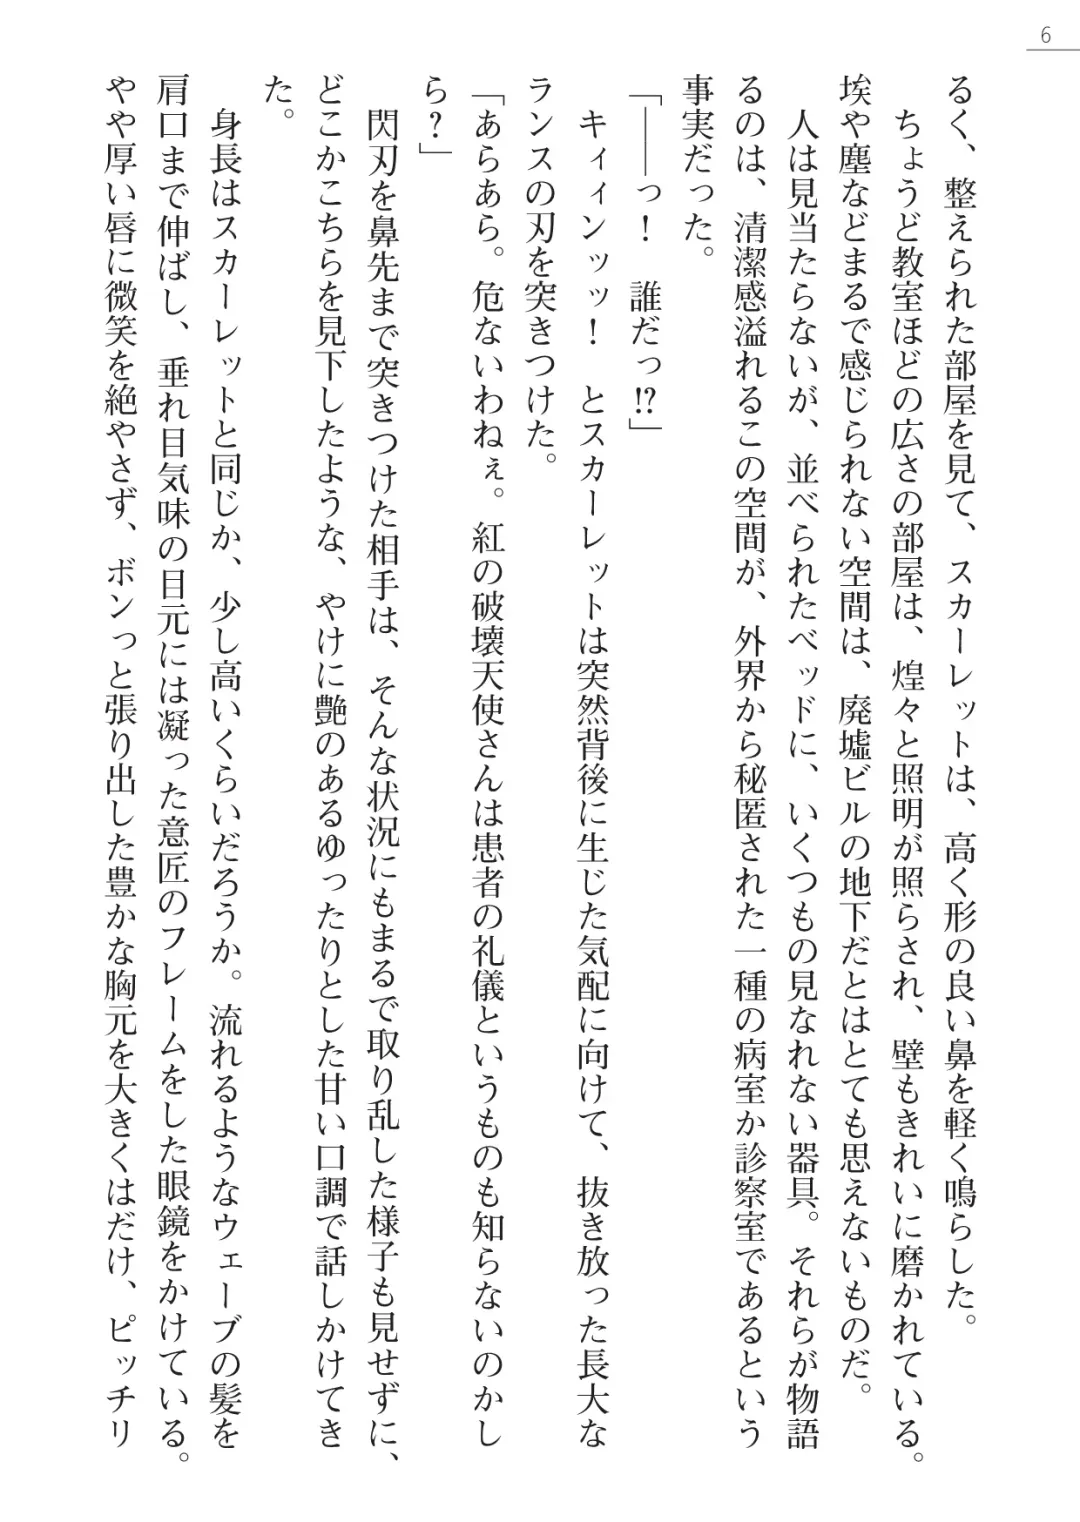 6
るく、整えられた部屋を見て、スカーレットは、高く形の良い鼻を軽く鳴らした。
　ちょうど教室ほどの広さの部屋は、煌々と照明が照らされ、壁もきれいに磨かれている。
埃や塵などまるで感じられない空間は、廃墟ビルの地下だとはとても思えないものだ。
　人は見当たらないが、並べられたベッドに、いくつもの見なれない器具。それらが物語
るのは、清潔感溢れるこの空間が、外界から秘匿された一種の病室か診察室であるという
事実だった。
「――っ！　誰だっ!?」
　キィィンッッ！　とスカーレットは突然背後に生じた気配に向けて、抜き放った長大な
ランスの刃を突きつけた。
「あらあら。危ないわねぇ。紅の破壊天使さんは患者の礼儀というものも知らないのかし
ら？」
　閃刃を鼻先まで突きつけた相手は、そんな状況にもまるで取り乱した様子も見せずに、
どこかこちらを見下したような、やけに艶のあるゆったりとした甘い口調で話しかけてき
た。
　身長はスカーレットと同じか、少し高いくらいだろうか。流れるようなウェーブの髪を
肩口まで伸ばし、垂れ目気味の目元には凝った意匠のフレームをした眼鏡をかけている。
やや厚い唇に微笑を絶やさず、ボンっと張り出した豊かな胸元を大きくはだけ、ピッチリ